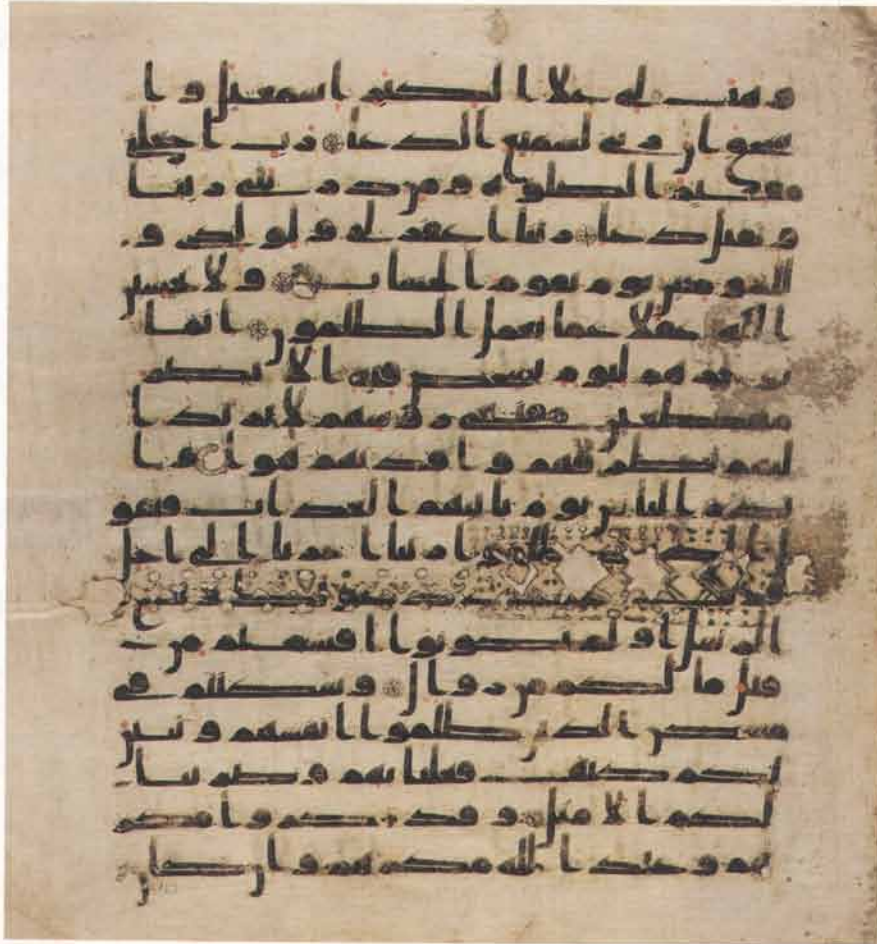 وهب لى علا الكبر اسمعيل وا
سحق ان ربى لسميع الدعا رب اجعلنى
مقيم الصلوة ومن ذريتى ربنا
وتقبل دعا ربنا اغفر لى ولولدى و
للمومنين يوم يقوم الحساب ولا تحسبن
الله غفلا عما يعمل الظلمون انما
يوخرهم ليوم تشخص فيه الابصر
مهطعين مقنعى روسهم لا يرتد ا
ليهم طرفهم وافدتهم هوا وا
نذر الناس يوم ياتيهم العذاب فيقو
ل الذين ظلموا ربنا اخرنا الى اجل
قريب نجب دعوتك ونتبع
الرسل اولم تكونوا اقسمتم من
قبل ما لكم من زوال وسكنتم فى
مسكن الذين ظلموا انفسهم وتبين
لكم كيف فعلنا بهم وضربنا
لكم الامثل وقد مكروا مكر
هم وعند الله مكرهم وان كان